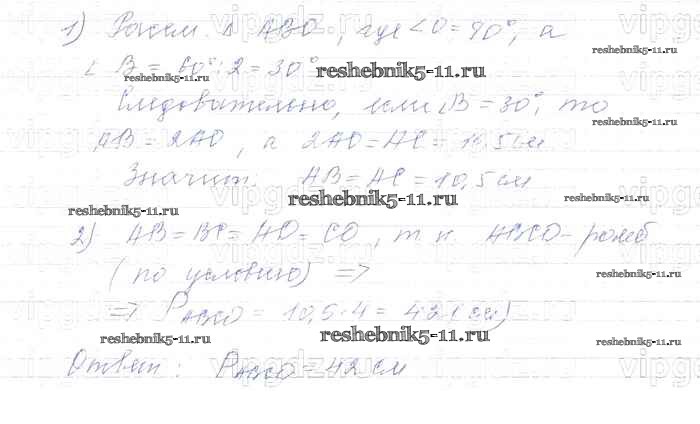 1) Рассм. Δ ABO, где ∠O = 90°, а
∠B = 60° : 2 = 30°
Следовательно, если ∠B = 30°, то
AB = 2AO, а 2AO = AC = 10,5 см
Значит: AB = AC = 10,5 см
2) AB = BC = AD = CD, т.к. ABCD - ромб
(по условию) =>
=> P ABCD = 10,5 · 4 = 42 (см)
Ответ: P ABCD = 42 см
reshebnik5-11.ru
reshebnik5-11.ru
reshebnik5-11.ru
reshebnik5-11.ru
reshebnik5-11.ru
reshebnik5-11.ru
reshebnik5-11.ru
reshebnik5-11.ru
reshebnik5-11.ru
reshebnik5-11.ru
reshebnik5-11.ru